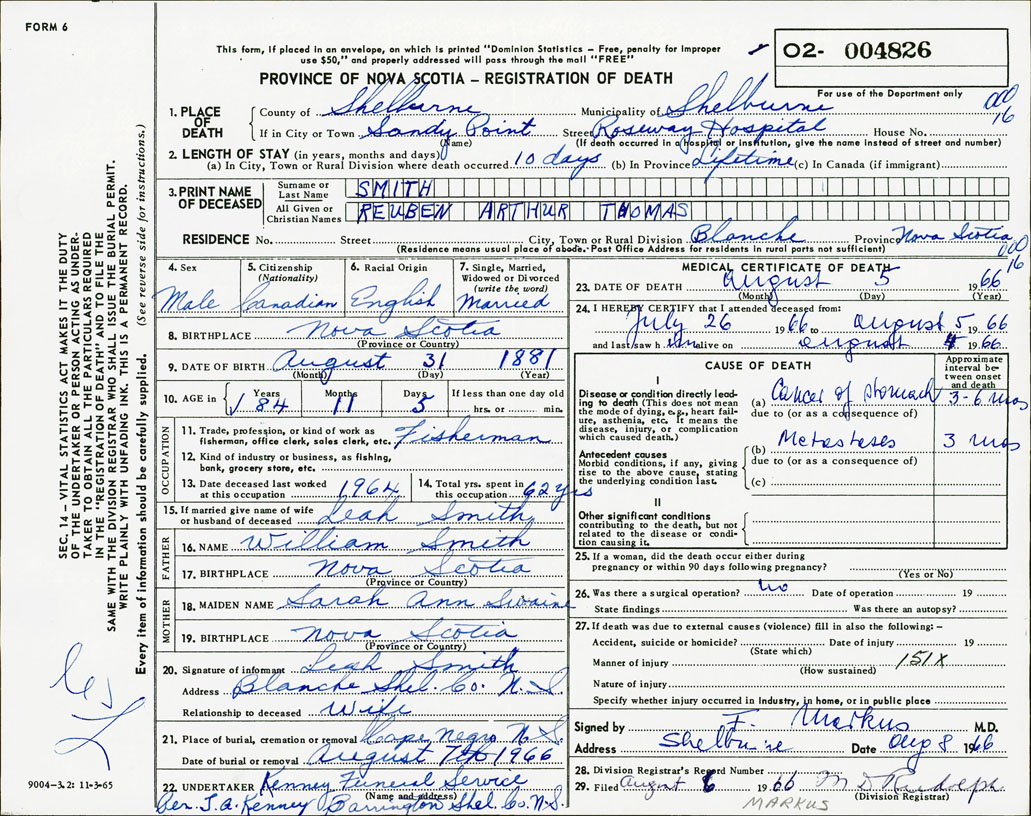 FORM 6
This form, if placed in an envelope, on which is printed "Dominion Statistics – Free, penalty for improper
use $50," and properly addressed will pass through the mail "FREE"
PROVINCE OF NOVA SCOTIA – REGISTRATION OF DEATH
02- 004826
For use of the Department only
000
16
1. PLACE OF DEATH
County of Shelburne Municipality of Shelburne
If in City or Town Sandy Point Street Roseway Hospital House No.
(Name) (If death occurred in a hospital or institution, give the name instead of street and number)
2. LENGTH OF STAY (in years, months and days)
(a) In City, Town or Rural Division where death occurred 10 days (b) In Province Lifetime (c) In Canada (if immigrant)
3. PRINT NAME OF DECEASED
Surname or Last Name SMITH
All Given or Christian Names REUBEN ARTHUR THOMAS
RESIDENCE No. Street City, Town or Rural Division Blanche Province Nova Scotia
(Residence means usual place of abode. Post Office Address for residents in rural parts not sufficient)
000
16
4. Sex
Male
5. Citizenship (Nationality)
Canadian
6. Racial Origin
English
7. Single, Married, Widowed or Divorced (write the word)
Married
8. BIRTHPLACE Nova Scotia
(Province or Country)
9. DATE OF BIRTH August 31 1881
(Month) (Day) (Year)
10. AGE in Years Months Days If less than one day old
84 11 5 hrs. or min.
OCCUPATION
11. Trade, profession, or kind of work as
fisherman, office clerk, sales clerk, etc. Fisherman
12. Kind of industry or business, as fishing,
bank, grocery store, etc.
13. Date deceased last worked at this occupation 1964
14. Total yrs. spent in this occupation 62 yrs
15. If married give name of wife
or husband of deceased Leah Smith
FATHER
16. NAME William Smith
17. BIRTHPLACE Nova Scotia
(Province or Country)
MOTHER
18. MAIDEN NAME Sarah Ann Swaine
19. BIRTHPLACE Nova Scotia
(Province or Country)
20. Signature of informant Leah Smith
Address Blanche Shel. Co. N.S.
Relationship to deceased Wife
21. Place of burial, cremation or removal Cape Negro N.S.
Date of burial or removal August 7th 1966
22. UNDERTAKER Kenney Funeral Service
(Name and address)
Per. J.A. Kenney Barrington Shel. Co. N.S.
MEDICAL CERTIFICATE OF DEATH
23. DATE OF DEATH August 5 1966
(Month) (Day) (Year)
24. I HEREBY CERTIFY that I attended deceased from:
July 26 1966 to August 5 1966
and last saw h im alive on August 4 1966
CAUSE OF DEATH
Approximate interval between onset and death
I
Disease or condition directly leading to death (This does not mean
the mode of dying, e.g., heart failure, asthenia, etc. It means the
disease, injury, or complication
which caused death.)
(a) Cancer of stomach 3-6 mos
due to (or as a consequence of)
Antecedent causes
Morbid conditions, if any, giving
rise to the above cause, stating
the underlying condition last.
(b) Metastases 3 mos
due to (or as a consequence of)
(c)
II
Other significant conditions
contributing to the death, but not
related to the disease or condition causing it.
25. If a woman, did the death occur either during
pregnancy or within 90 days following pregnancy?
(Yes or No)
26. Was there a surgical operation? no Date of operation 19
State findings Was there an autopsy?
27. If death was due to external causes (violence) fill in also the following: –
Accident, suicide or homicide? Date of injury 19
(State which)
Manner of injury 151X
(How sustained)
Nature of injury
Specify whether injury occurred in industry, in home, or in public place
Signed by F. Markus M.D.
Address Shelburne Date Aug 8 1966
28. Division Registrar's Record Number
29. Filed August 6 1966 M D Rudolph
(Division Registrar)
MARKUS
SEC. 14 – VITAL STATISTICS ACT MAKES IT THE DUTY
OF THE UNDERTAKER OR PERSON ACTING AS UNDER-
TAKER TO OBTAIN ALL THE PARTICULARS REQUIRED
IN THE "REGISTRATION OF DEATH" AND TO FILE THE
SAME WITH THE DIVISION REGISTRAR WHO SHALL ISSUE THE BURIAL PERMIT.
WRITE PLAINLY WITH UNFADING INK. THIS IS A PERMANENT RECORD.
Every item of information should be carefully supplied. (See reverse side for instructions.)
9004–3.2: 11-3-65